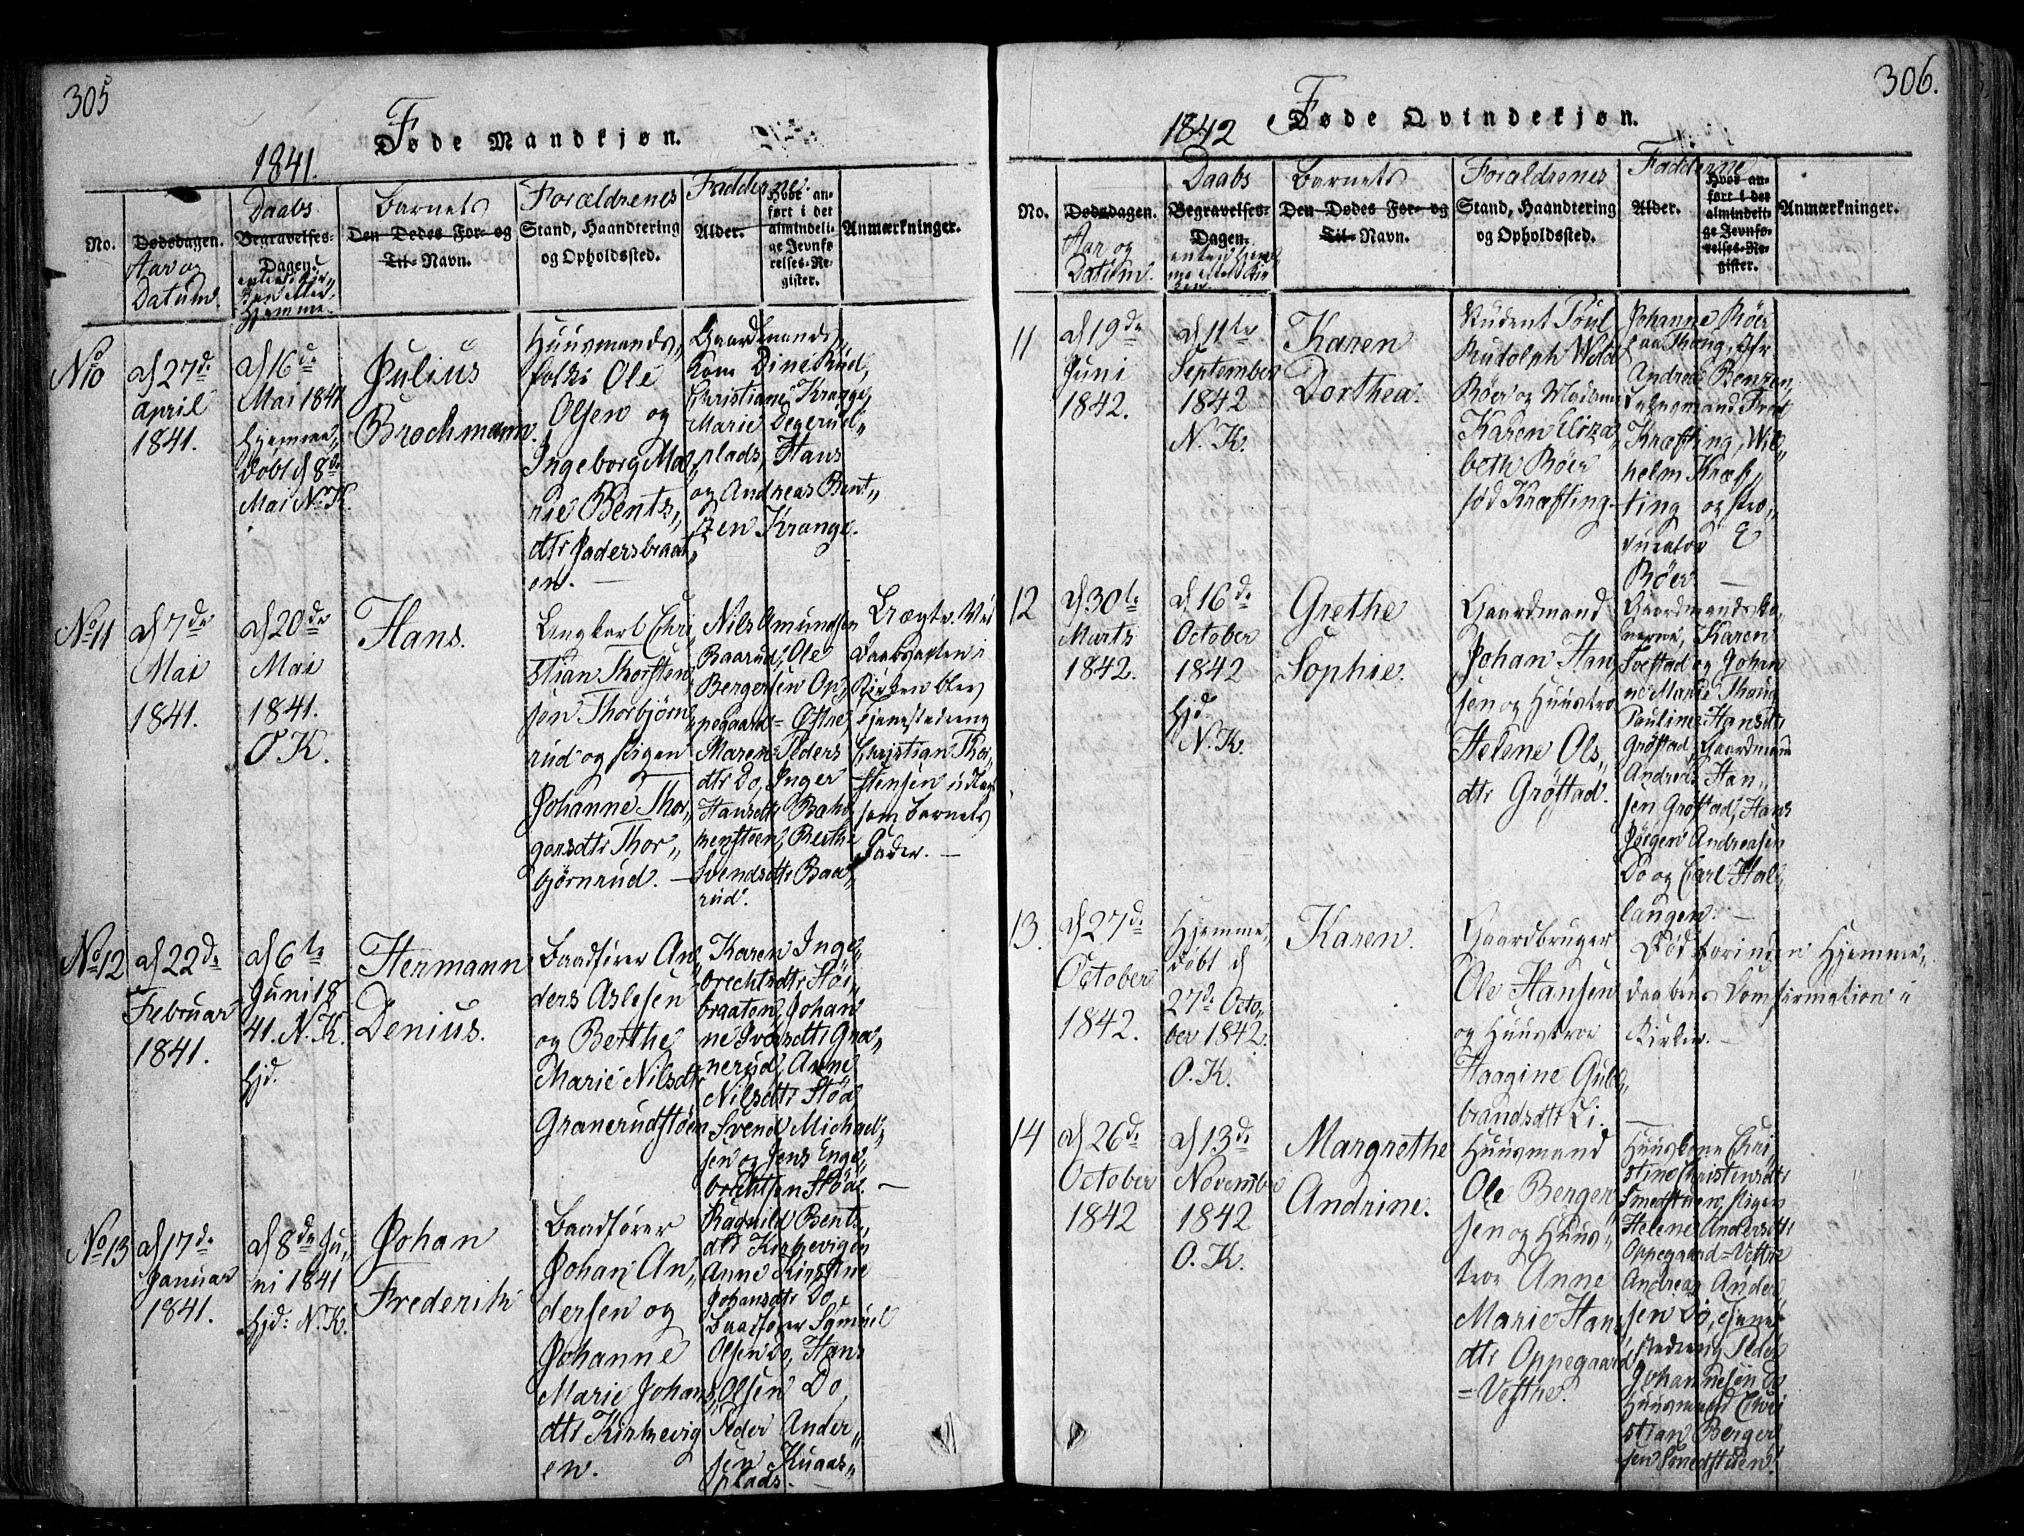 305
Føde Mandkjøn.
1841.
No.
Dødsdagen.
Aar og
Datum.
Daabs
Begravelses-
Dagen
enten i Kir-
ken eller
Hjemme.
Barnets
Den Dødes For- og
Til- Navn.
Forældrenes
Stand, Haandtering
og Opholdssted.
Fadderne.
Alder.
Hvor an-
ført i det
almindeli-
ge Jevnfø-
relses-Re-
gister.
Anmærkninger.
No 10
d 27de
April
1841.
d 16de
Mai 1841
hjemme,,
døbt d 8de
Mai N. K.
Julius
Brochmann.
Huusmands,,
folk Ole
Olsen og
Ingeborg Ma,,
rie Bents,,
dtr Padersbraat,,
en. —
Gaardmands,,
kone Dine Rud,
Christiane Krange,
Marie Degerud,,
plads, Hans
og Andreas Bent,,
zen Krange.
No 11
d 7de
Mai
1841.
d 20de
Mai
1841.
O. K.
Hans.
Ungkarl Chri
stian Thorsten,,
sen Thorbjørn,,
rud og Pigen
Johanne Thor,,
gersdtr Thor,,
bjørnrud. —
Nils Amundsen
Baarud, Ole
Bergersen Op,,
pegaard-Østre
Maren Peders
dtr Do, Inger
Hansdtr Bæk,,
kensteen, Berthe
Svendsdtr Baa,,
rud.
Uægte. Ved
Daabspagten i
Kirken blev
Tjenestedreng
Christian Thor,,
stensen udlagt
som Barnets
Fader. —
No 12
d 22de
Februar
1841.
d 6te
Juni 18
41. N. K.
hjd.
Hermann
Denius.
Baadfører An,,
ders Aslesen
og Berthe
Marie Nilsdtr
Granerudstøen
Karen Inge,,
brechtsdtr Støi,,
braaten, Johan
ne Iversdtr Gra,,
nerud, Anne
Nilsdtr Støa
Svend Michael,,
sen og Jens Enge,,
brechtsen Støa. —
No 13
d 17de
Januar
1841.
d 8de Ju,,
ni 1841
hjd: N. K.
Johan
Frederik
Baadfører
Johan An,,
dersen og
Johanne
Marie Johans,,
dtr Kirkevig
en.
Ragnild Bents,,
dtr Kirkevigen
Anne Kirstine
Johansdtr Do,
Baadfører Samuel
Olsen Do, Hans
Olsen Do,
Peder Ander,,
sen Knaas,,
plads.
306.
Føde Qvindekjøn.
1842
No.
Dødsdagen.
Aar og
Datum.
Daabs
Begravelses-
Dagen.
enten hjem
me eller Kir
ken
Barnets
Den Dødes For- og
Til- Navn.
Forældrenes
Stand, Haandtering
og Opholdssted.
Fadderne
Alder.
Hvor an-
ført i det
almindeli-
ge Jevnfø-
relses-Re-
gister.
Anmærkninger.
11
d 19de
Juni
1842.
d 11te
September
1842
N. K.
Karen
Dorthea.
Student Poul
Rudolph Wold
Røer og Madame
Karen Eliza,,
beth Røer
fød Kræfting.
Johanne Røer
paa Thaug, Hr
Andreas Benzen,
Lehnsmand Fred
Kræfting, Wil,,
helm Kræf,,
ting og Pro,,
curator E
Røer. —
12
d 30te
Marts
1842.
d 16de
October
1842
hjd.
N. K.
Grethe
Sophie.
Gaardmand
Johan Han
sen og Huustro
Helene Ols,,
dtr Grøstad.
Gaardmandsko,,
nerne, Karen
Toestad og Johan
ne Marie Thaug
Pauline Hansdtr
Grøstad, Gaardmand
Andreas Han,,
sen Grøstad, Hans
Jørgen Andreasen
Do og Carl Hal,,
langen. —
13.
d 27de
October
1842.
Hjemme,,
døbt d
27de Octo,,
ber 1842.
O. K.
Karen.
Gaardbruger
Ole Hansen
og Huustroe
Haagine Gul,,
brandsdtr Li.
Død forinden Hjemme,,
daabens Confirmation i
Kirken. —
14
d 26de
October
1842
d 13de
November
1842
O. K.
Margrethe
Andrine.
Huusmand
Ole Berger,,
sen og Huus,,
troe Anne
Marie Hans
dtr Oppegaard
=Vestre.
Huuskone Chri
stine Christensdtr
Smedstuen, Pigen
Helene Andersdtr
Oppegaard=Vestre
Andreas Ander
sen Do, Tjene
stedreng Peder
Johannesen Do
Huusmand Chri
stian Berger
sen Smedstuen.